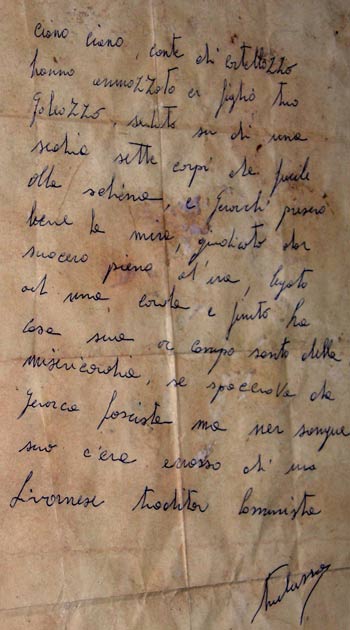 Ciano Ciano, conte di cortellazzo
hanno ammazzato er figlio tuo
Galeazzo, seduto su di una
sedia sette corpi de fucile
alla schiena, e perché presero
bene la mira, giudicato dar
suocero pieno d'ira, legato
ad una corda e finito ha
casa sua ar campo santo della
misericordia, se spacciava da
gerarca fascista ma ner sangue
suo c'era er rosso di un
Livornese traditor Comunista